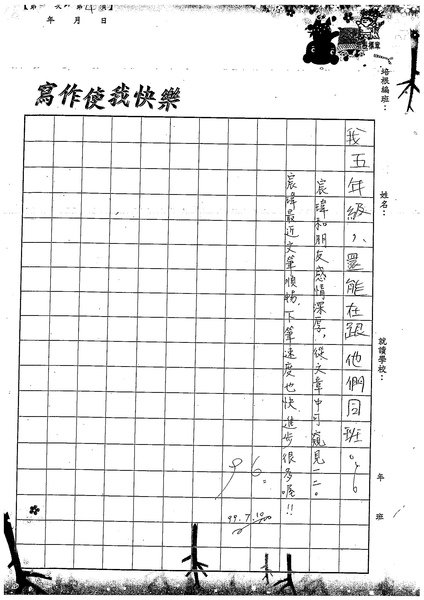 年 月 日
培根編班：
寫作使我快樂
姓名：
就讀學校：
年 班
我五年級，還能在跟他們同班。
宸瑋和朋友感情深厚，從文章中可窺見一二。
宸瑋最近文筆順暢，下筆速度也快，進步很多喔！！
96
99.7.10